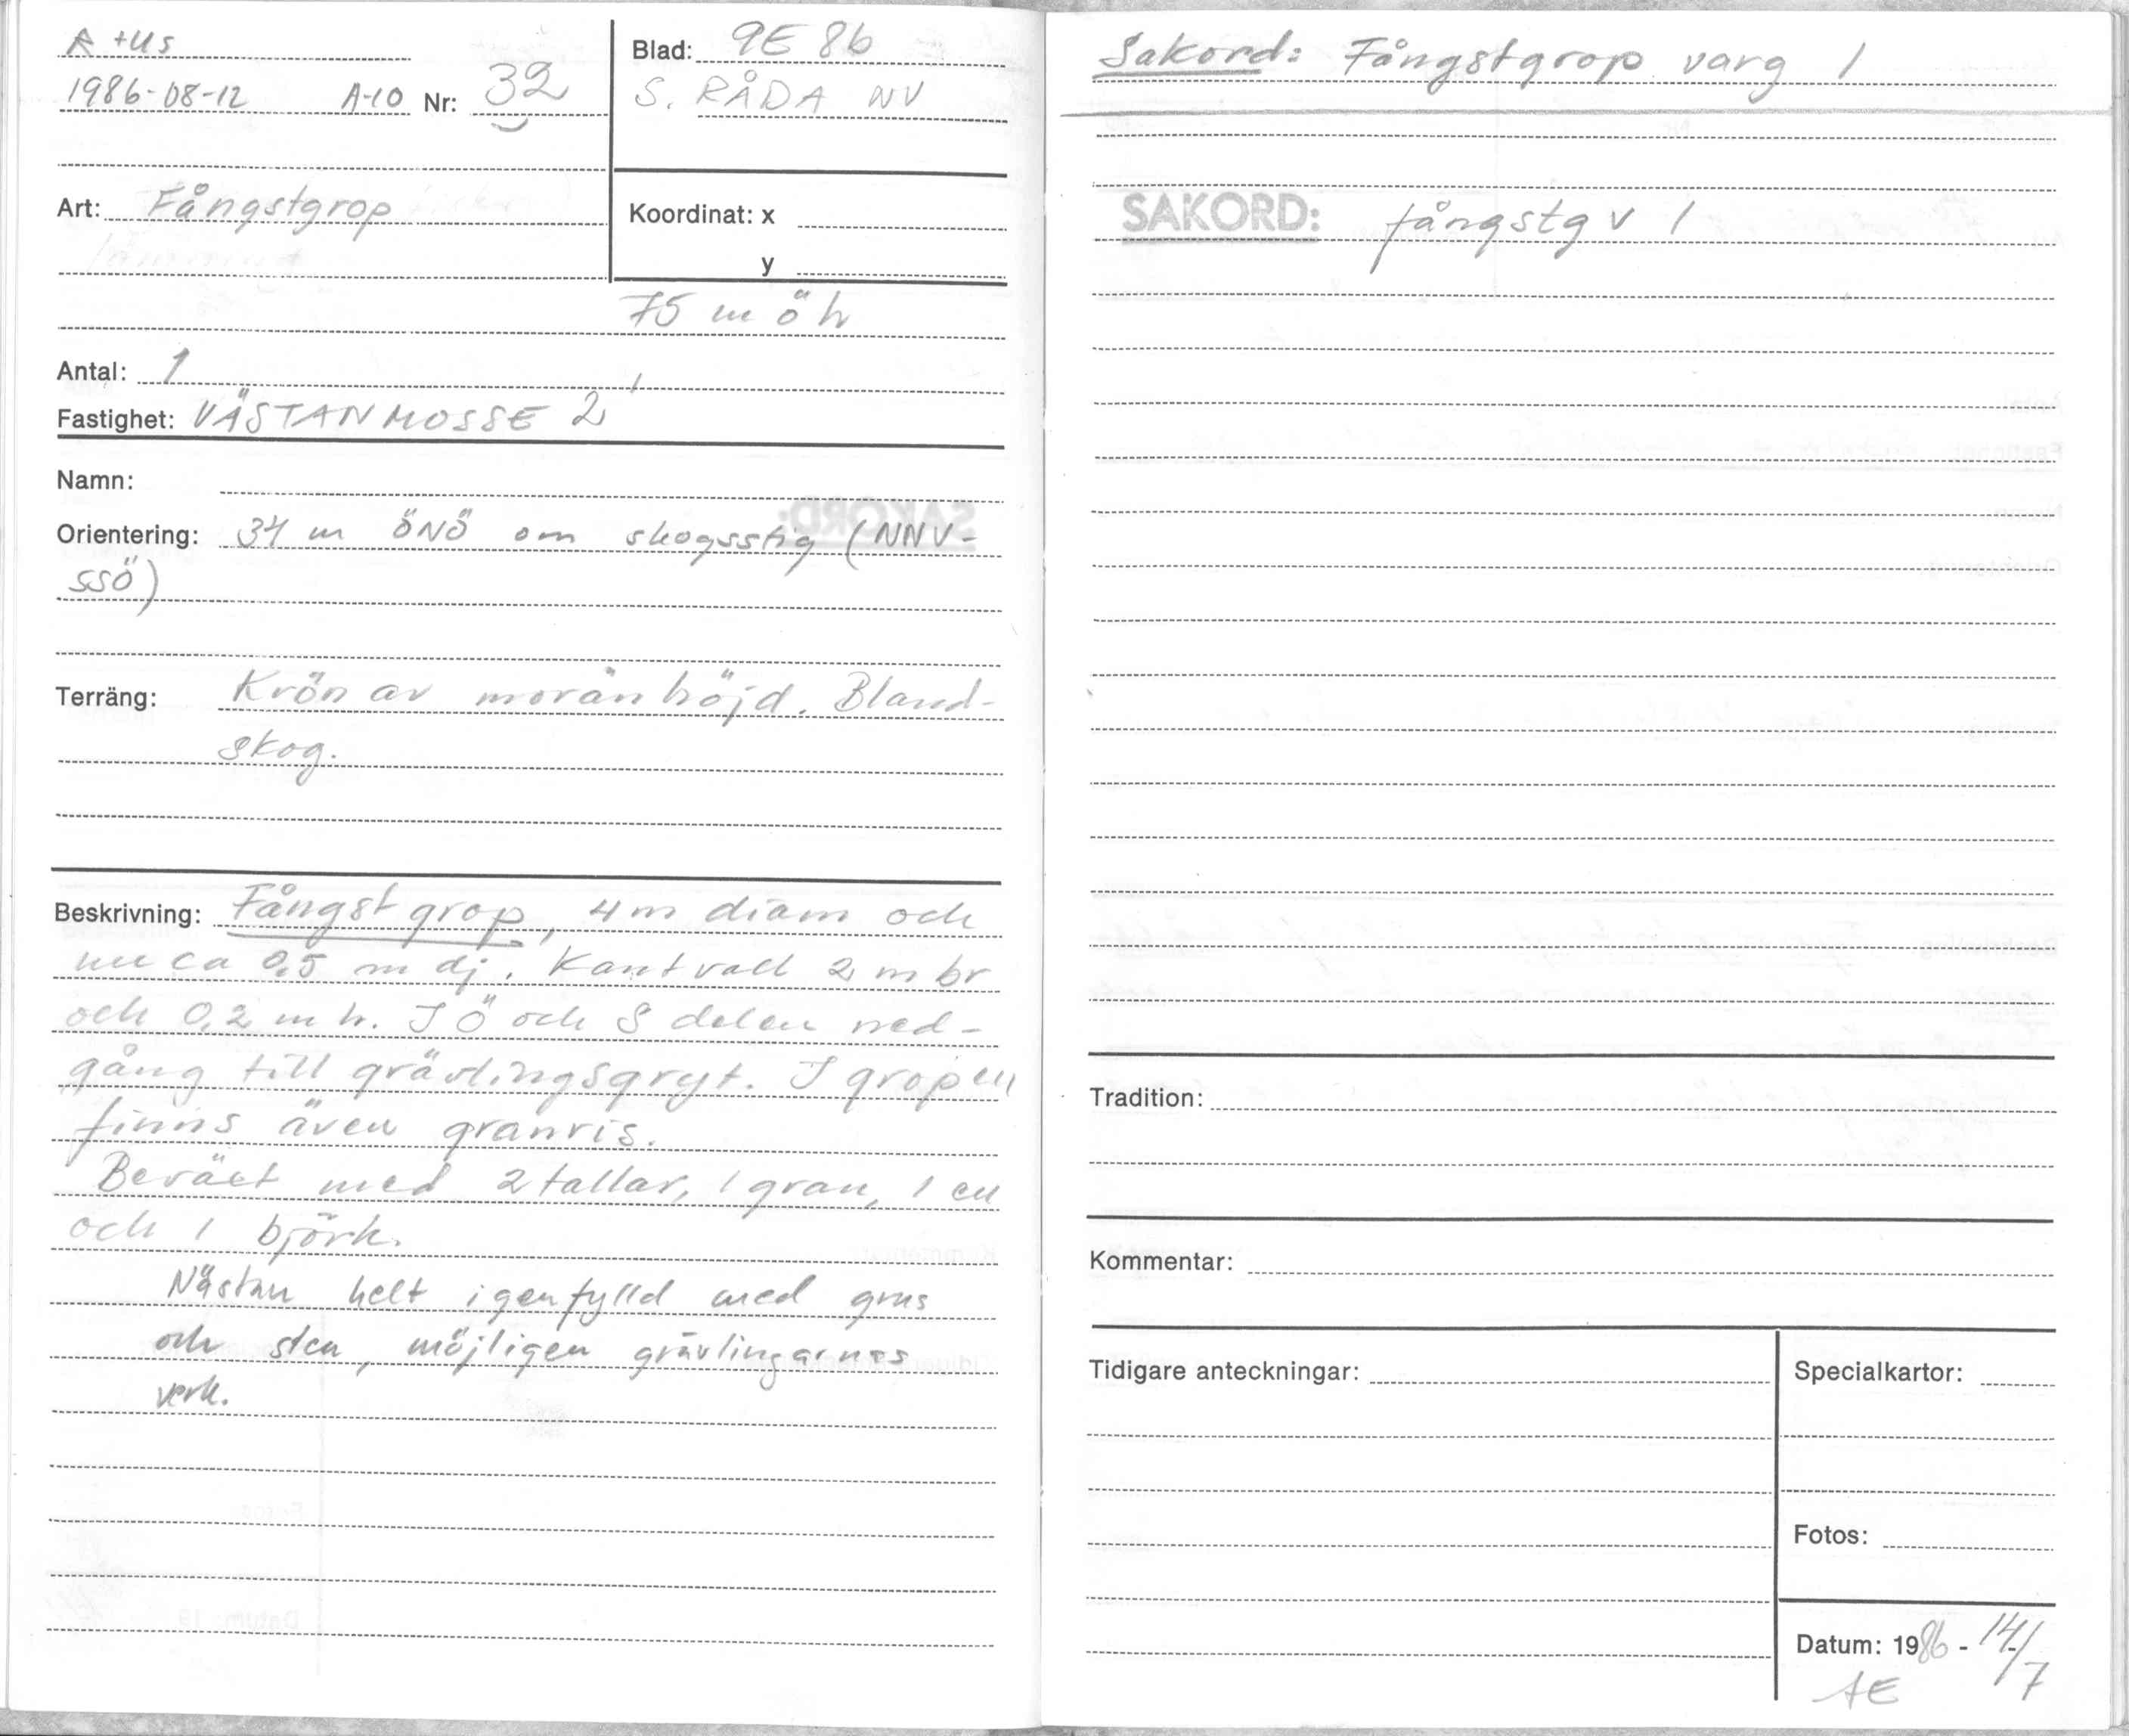 R + US
1986-08-12 A-10 Nr: 32
Blad: 9E 8b
S. RÅDA NV
Art: Fångstgrop
Koordinat: x
y
75 m ö h
Antal: 1
Fastighet: VÄSTANMOSSE 2
Namn:
Orientering: 34 m ÖNÖ om skogsstig (NNV-
SSÖ)
Terräng: Krön av moränhöjd. Bland-
skog.
Beskrivning: Fångstgrop, 4 m diam och
nu ca 0,5 m dj. Kantvall 2 m br
och 0,2 m h. I Ö och S delen ned-
gång till grävlingsgryt. I gropen
finns även granris.
Beväxt med 2 tallar, 1 gran, 1 en
och 1 björk.
Nästan helt igenfylld med grus
och sten, möjligen grävlingarnas
verk.
Sakord: Fångstgrop varg 1
SAKORD: fångstg v 1
Tradition:
Kommentar:
Tidigare anteckningar:
Specialkartor:
Fotos:
Datum: 1986 - 14/7
AE